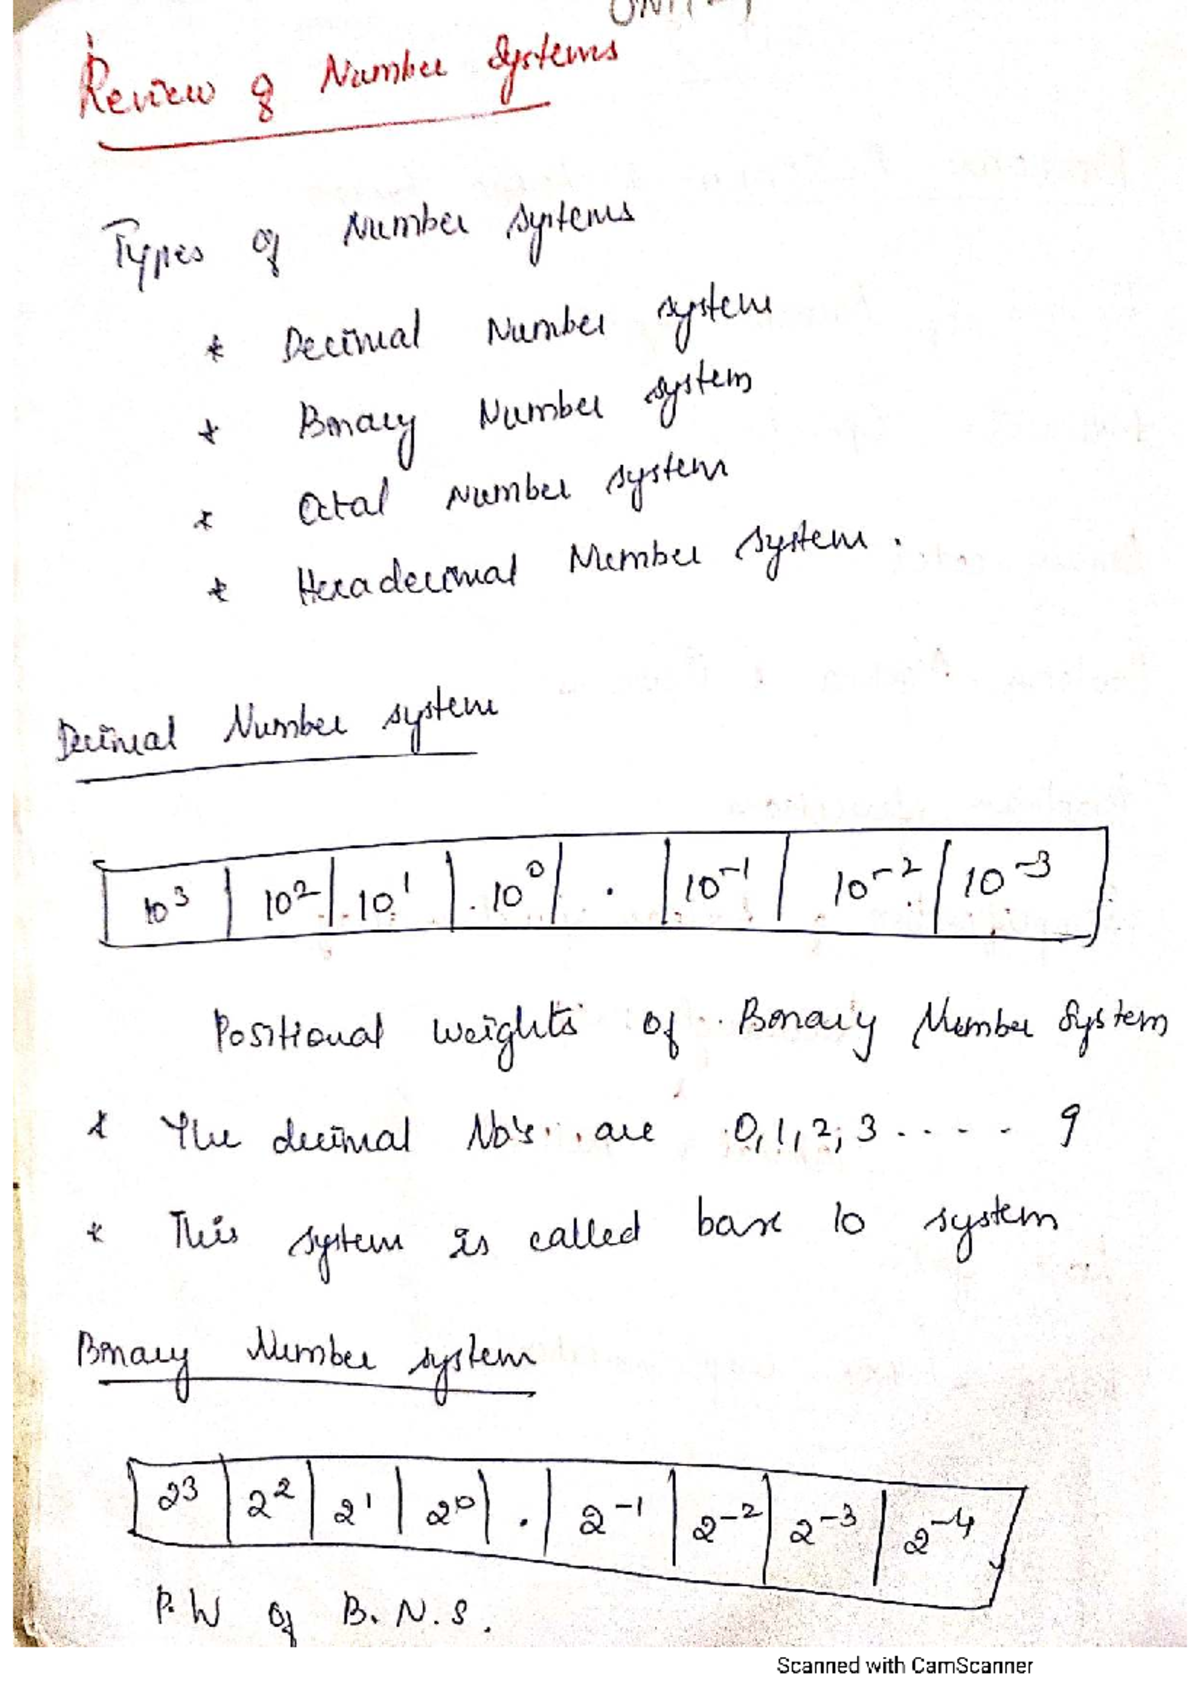 UNIT-1
Review of Number Systems
Types of Number systems
* Decimal Number system
* Binary Number system
* Octal Number system
* Hexadecimal Number system.
Decimal Number system
10³ | 10² | 10¹ | 10⁰ | . | 10⁻¹ | 10⁻² | 10⁻³
Positional weights of Binary Number System
* The decimal No's are 0, 1, 2, 3 . . . . 9
* This system is called base 10 system
Binary Number system
2³ | 2² | 2¹ | 2⁰ | . | 2⁻¹ | 2⁻² | 2⁻³ | 2⁻⁴
P.W of B.N.S.
Scanned with CamScanner